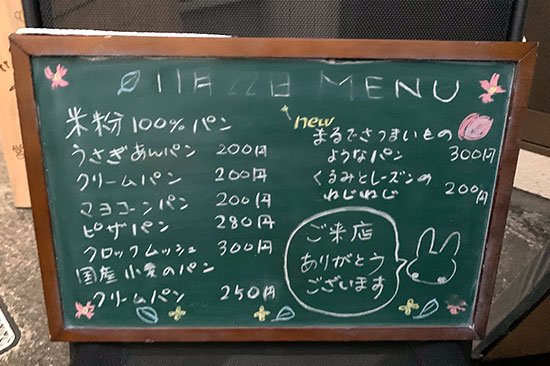 11月22日 MENU
米粉100%パン
うさぎあんパン 200円
クリームパン 200円
マヨコーンパン 200円
ピザパン 280円
クロックムッシュ 300円
国産小麦のパン
クリームパン 250円
new
まるでさつまいもの
ようなパン 300円
くるみとレーズンの
ねじねじ 200円
ご来店
ありがとう
ございます